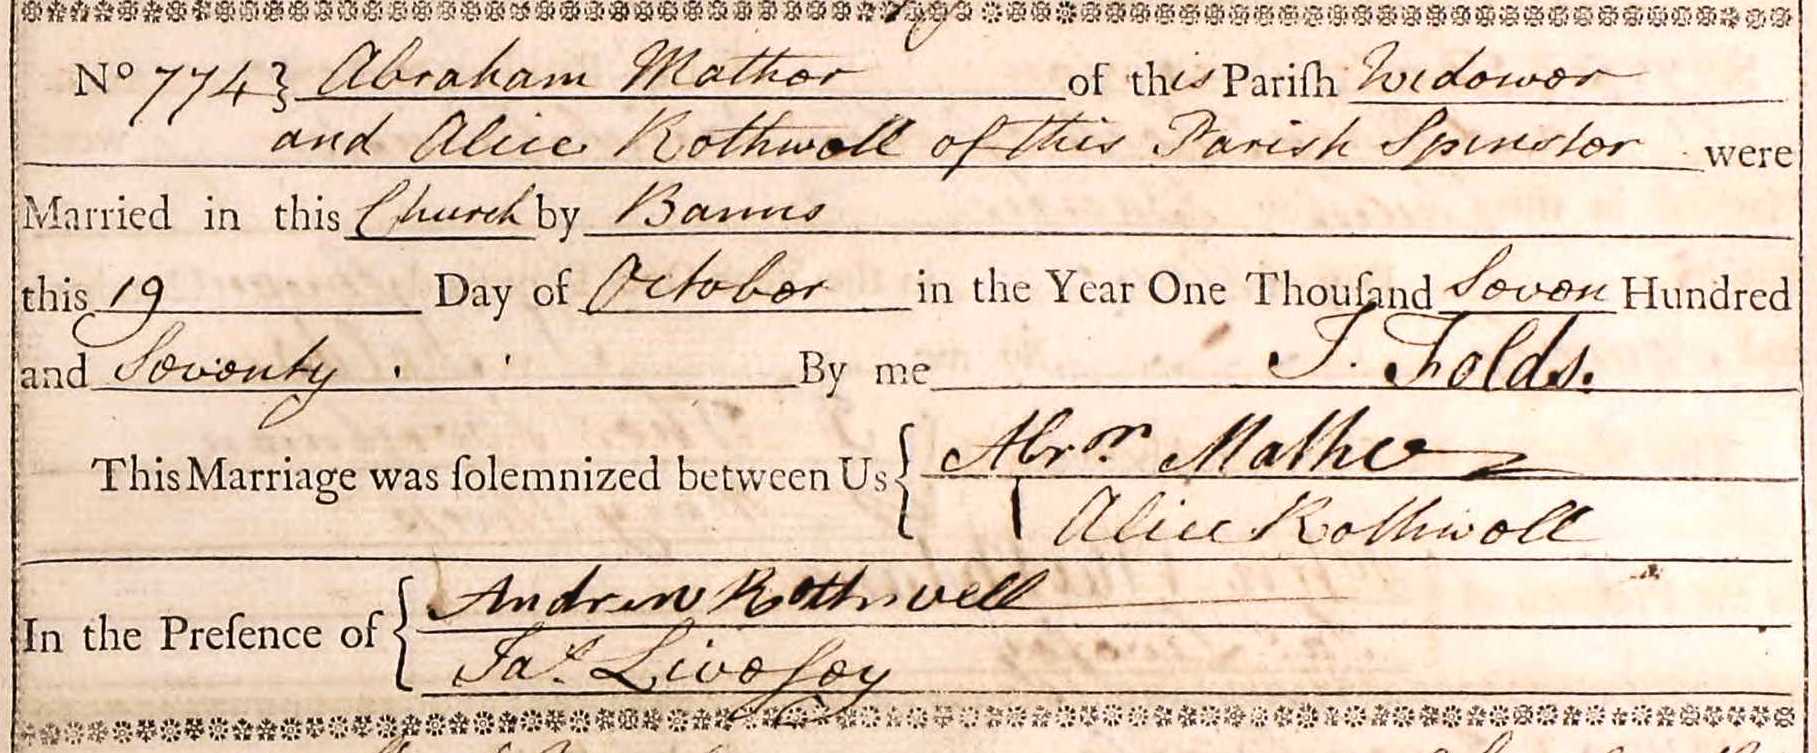 No 774} Abraham Mather of this Pariſh Widower
and Alice Rothwell of this Parish Spinster were
Married in this Church by Banns
this 19 Day of October in the Year One Thouſand Seven Hundred
and Seventy . . By me J. Folds.
This Marriage was ſolemnized between Us { Abrm Mather
Alice Rothwell
In the Preſence of { Andrew Rothwell
Jas. Liveſey